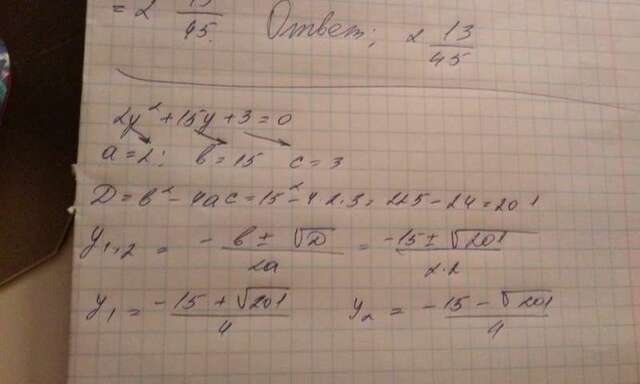 = 2 13/45. Ответ: 2 13/45
2y² + 15y + 3 = 0
a = 2; в = 15 c = 3
D = в² - 4ac = 15² - 4·2·3 = 225 - 24 = 201
y₁,₂ = (-в ± √D)/2a = (-15 ± √201)/2·2
y₁ = (-15 + √201)/4 y₂ = (-15 - √201)/4